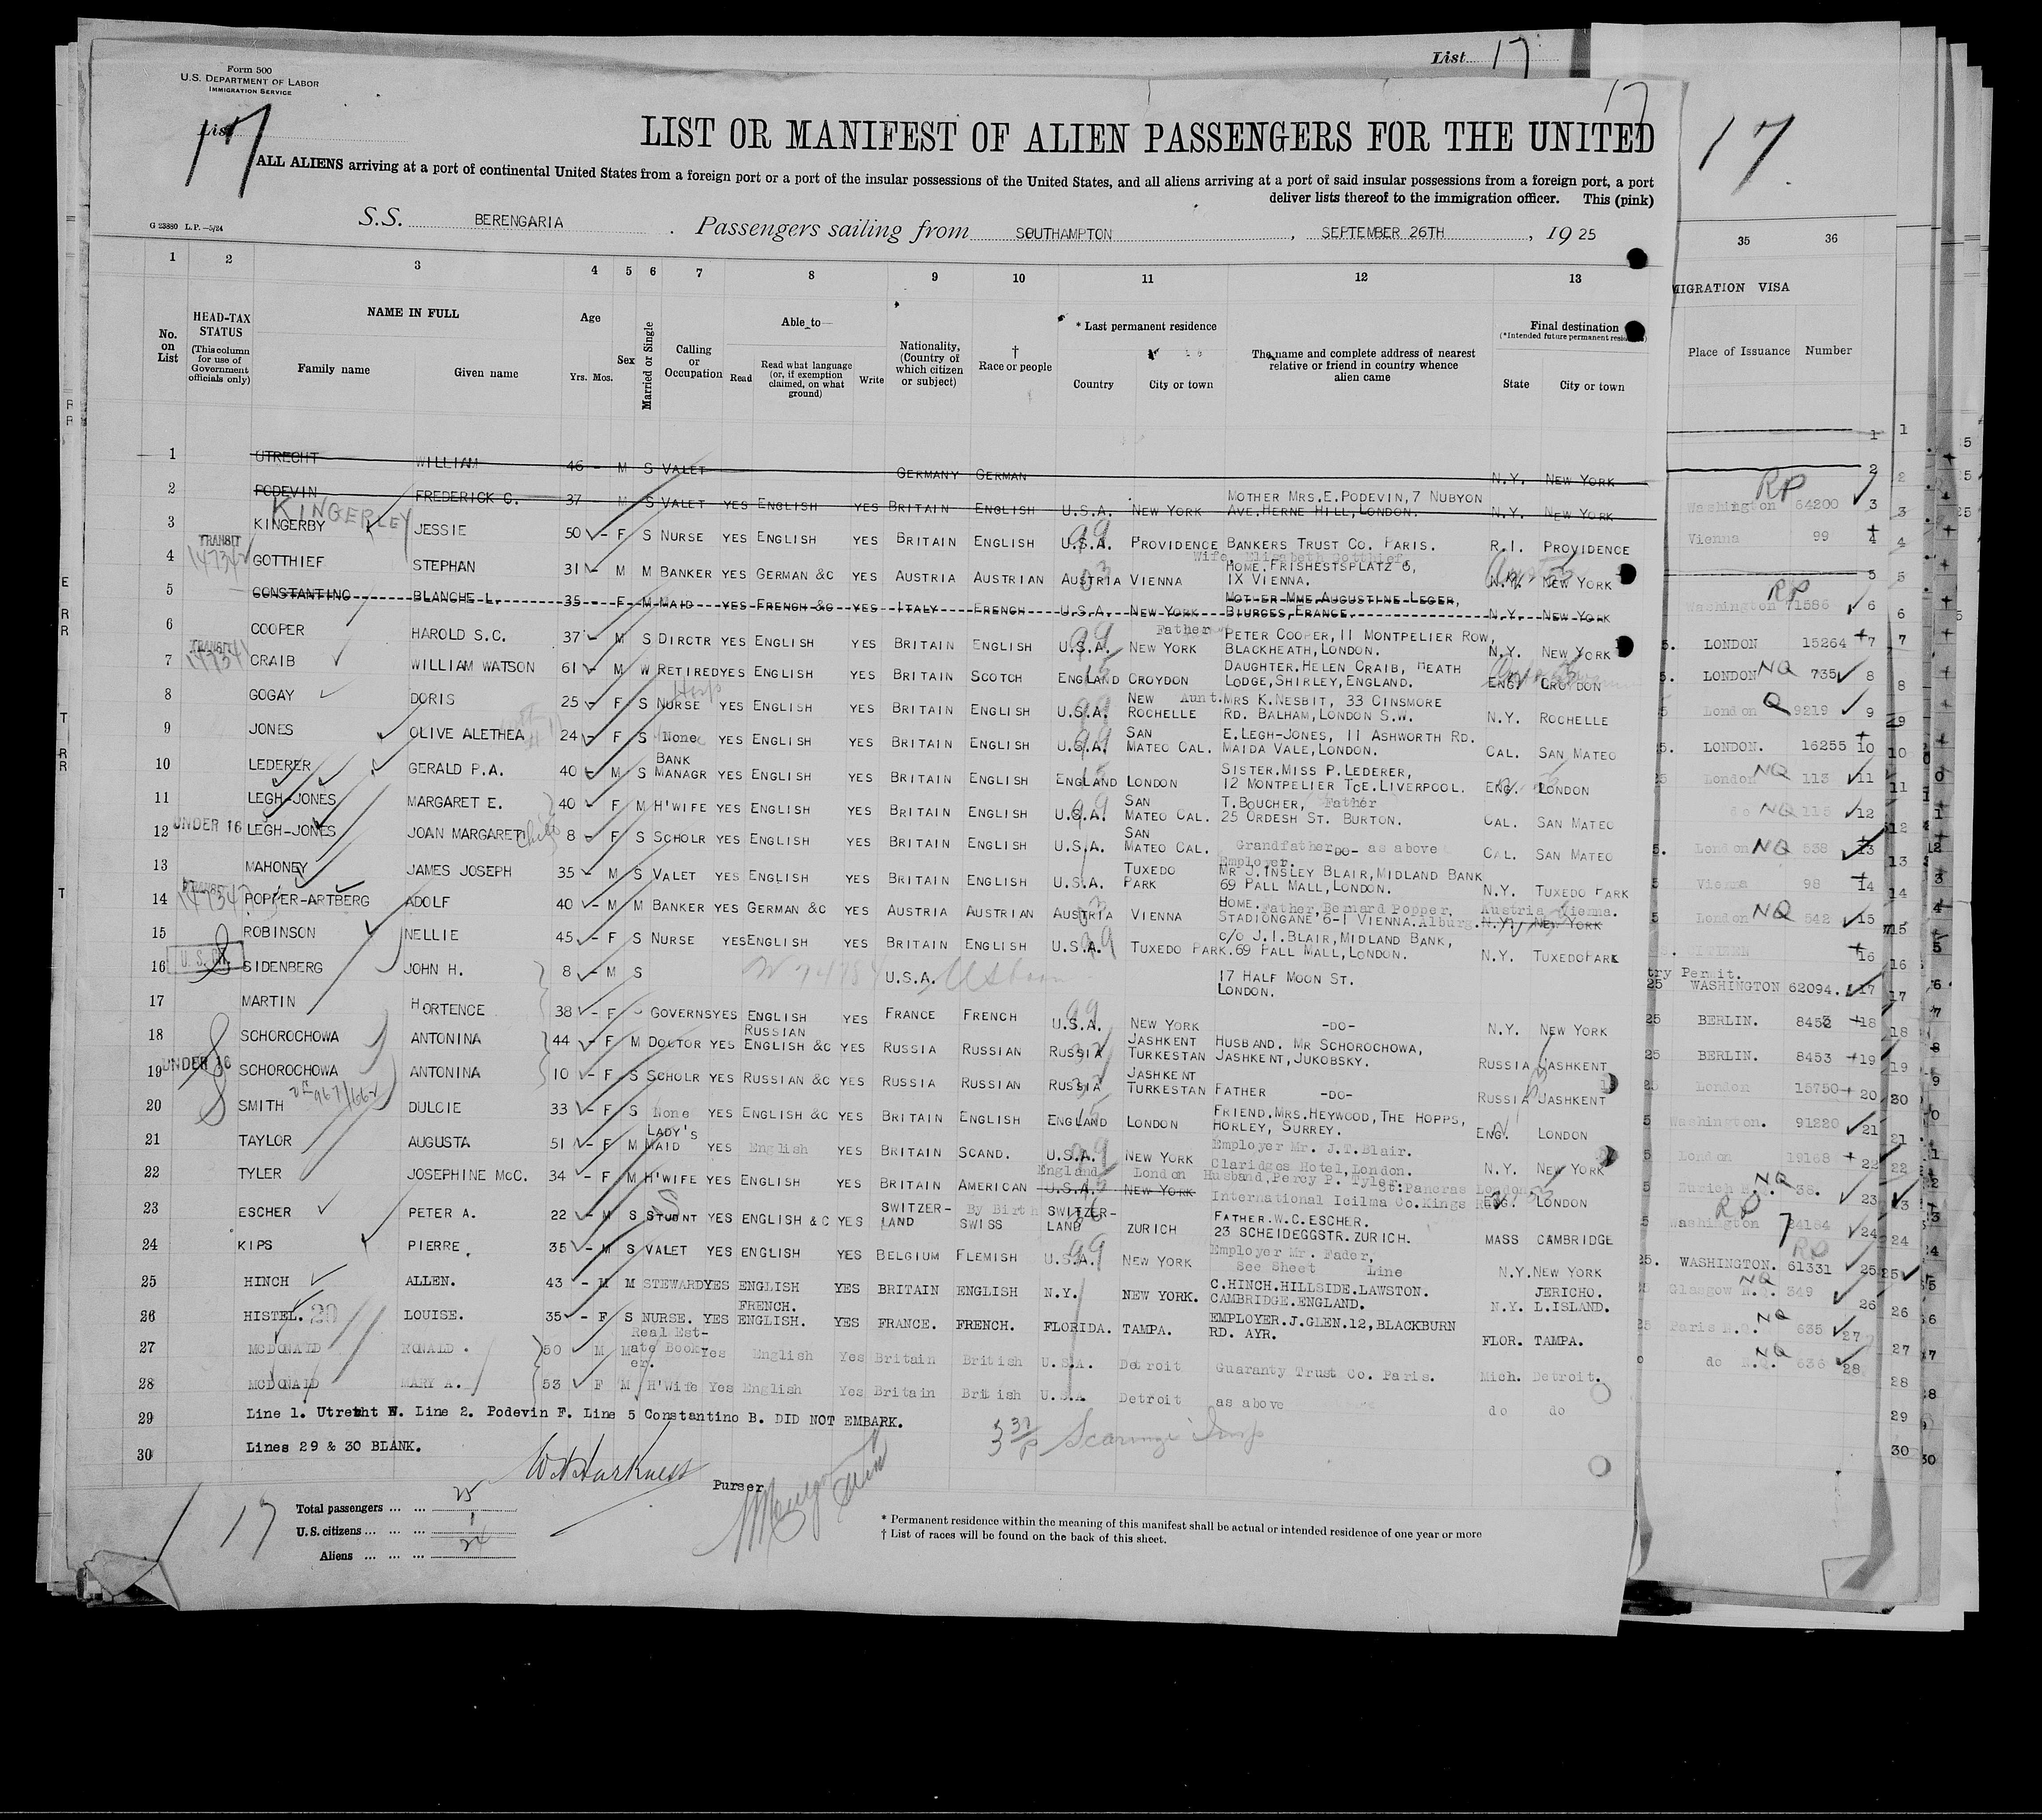 List 17
Form 500
U.S. DEPARTMENT OF LABOR
IMMIGRATION SERVICE
List 17
17
17
LIST OR MANIFEST OF ALIEN PASSENGERS FOR THE UNITED
ALL ALIENS arriving at a port of continental United States from a foreign port or a port of the insular possessions of the United States, and all aliens arriving at a port of said insular possessions from a foreign port, a port
deliver lists thereof to the immigration officer. This (pink)
G 23880 L.P.—5/24
S.S. BERENGARIA . Passengers sailing from SOUTHAMPTON , SEPTEMBER 26TH , 1925
1 2 3 4 5 6 7 8 9 10 11 12 13 35 36
No. on List
HEAD-TAX STATUS (This column for use of Government officials only)
NAME IN FULL
Family name Given name
Age
Yrs. Mos.
Sex
Married or Single
Calling or Occupation
Able to—
Read Read what language (or, if exemption claimed, on what ground) Write
Nationality, (Country of which citizen or subject)
† Race or people
* Last permanent residence
Country City or town
The name and complete address of nearest relative or friend in country whence alien came
Final destination
State City or town
MIGRATION VISA
Place of Issuance Number
1 UTRECHT WILLIAM 46 - M S VALET GERMANY GERMAN N.Y. NEW YORK
2 PODEVIN FREDERICK C. 37 - M S VALET YES ENGLISH YES BRITAIN ENGLISH U.S.A. NEW YORK MOTHER MRS.E.PODEVIN,7 NUBYON AVE.HERNE HILL,LONDON. N.Y. NEW YORK
KINGERLEY
3 KINGERBY JESSIE 50 - F S NURSE YES ENGLISH YES BRITAIN ENGLISH U.S.A. PROVIDENCE BANKERS TRUST CO. PARIS. R.I. PROVIDENCE RP Washington 64200 3
TRANSIT
4 GOTTHIEF STEPHAN 31 - M M BANKER YES GERMAN &C YES AUSTRIA AUSTRIAN AUSTRIA VIENNA Wife Elizabeth Gotthief, HOME.FRISHESTSPLATZ 6, IX VIENNA. N.Y. NEW YORK Vienna 99 4
5 CONSTANTINO BLANCHE L. 35 - F M MAID YES FRENCH &C YES ITALY FRENCH U.S.A. NEW YORK MOTLER MME.AUGUSTINE LEGER, BIURGES, FRANCE. N.Y. NEW YORK 5
6 COOPER HAROLD S.C. 37 - M S DIRCTR YES ENGLISH YES BRITAIN ENGLISH U.S.A. NEW YORK Father PETER COOPER,11 MONTPELIER ROW, BLACKHEATH,LONDON. N.Y. NEW YORK RP Washington 71586 6
TRANSIT
7 CRAIB WILLIAM WATSON 61 M W RETIRED YES ENGLISH YES BRITAIN SCOTCH ENGLAND CROYDON DAUGHTER.HELEN CRAIB, HEATH LODGE,SHIRLEY,ENGLAND. ENG. CROYDON LONDON 15264 7
8 GOGAY DORIS 25 - F S NURSE YES ENGLISH YES BRITAIN ENGLISH U.S.A. NEW ROCHELLE Aunt.MRS K.NESBIT, 33 GINSMORE RD. BALHAM,LONDON S.W. N.Y. ROCHELLE LONDON NQ 735 8
9 JONES OLIVE ALETHEA 24 - F S None YES ENGLISH YES BRITAIN ENGLISH U.S.A. SAN MATEO CAL. E.LEGH-JONES, 11 ASHWORTH RD. MAIDA VALE,LONDON. CAL. SAN MATEO London Q 9219 9
10 LEDERER GERALD P.A. 40 - M S BANK MANAGR YES ENGLISH YES BRITAIN ENGLISH ENGLAND LONDON SISTER.MISS P.LEDERER, 12 MONTPELIER TCE.LIVERPOOL. ENG. LONDON LONDON. 16255 10
11 LEGH-JONES MARGARET E. 40 - F M H'WIFE YES ENGLISH YES BRITAIN ENGLISH U.S.A. SAN MATEO CAL. T.BOUCHER, Father 25 ORDESH ST. BURTON. CAL. SAN MATEO London NQ 113 11
UNDER 16
12 LEGH-JONES JOAN MARGARET Child 8 - F S SCHOLR YES ENGLISH YES BRITAIN ENGLISH U.S.A. SAN MATEO CAL. Grandfather DO- as above CAL. SAN MATEO do NQ 115 12
13 MAHONEY JAMES JOSEPH 35 - M S VALET YES ENGLISH YES BRITAIN ENGLISH U.S.A. TUXEDO PARK Employer. MR J.INSLEY BLAIR,MIDLAND BANK 69 PALL MALL,LONDON. N.Y. TUXEDO PARK London NQ 538 13
14 POPPER-ARTBERG ADOLF 40 - M M BANKER YES GERMAN &C YES AUSTRIA AUSTRIAN AUSTRIA VIENNA HOME. Father, Bernard Popper, STADIONGANE 6-1 VIENNA. Alburg. Austria Vienna. N.Y. NEW YORK Vienna 98 14
15 ROBINSON NELLIE 45 - F S NURSE YES ENGLISH YES BRITAIN ENGLISH U.S.A. TUXEDO PARK. C/O J.I.BLAIR,MIDLAND BANK, 69 PALL MALL,LONDON. N.Y. TUXEDO PARK London NQ 542 15
16 SIDENBERG JOHN H. 8 - M S U.S.A. 17 HALF MOON ST. LONDON. 16
17 MARTIN HORTENCE 38 - F S GOVERNS YES ENGLISH YES FRANCE FRENCH U.S.A. NEW YORK -DO- N.Y. NEW YORK try Permit. WASHINGTON 62094. 17
18 SCHOROCHOWA ANTONINA 44 - F M DOCTOR YES RUSSIAN ENGLISH &C YES RUSSIA RUSSIAN RUSSIA JASHKENT TURKESTAN HUSBAND. MR SCHOROCHOWA, JASHKENT,JUKOBSKY. RUSSIA JASHKENT BERLIN. 8452 18
UNDER 16
19 SCHOROCHOWA ANTONINA 10 - F S SCHOLR YES RUSSIAN &C YES RUSSIA RUSSIAN RUSSIA JASHKENT TURKESTAN FATHER -DO- RUSSIA JASHKENT BERLIN. 8453 19
20 SMITH DULCIE 33 - F S None YES ENGLISH &C YES BRITAIN ENGLISH ENGLAND LONDON FRIEND.MRS.HEYWOOD,THE HOPPS, HORLEY, SURREY. ENG. LONDON London 15750 20
21 TAYLOR AUGUSTA 51 - F M LADY'S MAID YES English YES BRITAIN SCAND. U.S.A. NEW YORK Employer Mr. J.T.Blair. Claridges Hotel,London. N.Y. NEW YORK Washington. 91220 21
22 TYLER JOSEPHINE McC. 34 - F M H'WIFE YES ENGLISH YES BRITAIN AMERICAN England London U.S.A. NEW YORK Husband,Percy P. Tyler. St.Pancras London International Icilma Co.Kings Rd. ENG. LONDON London 19168 22
23 ESCHER PETER A. 22 - M S STUDNT YES ENGLISH &C YES SWITZER-LAND By Birth SWISS SWITZER-LAND ZURICH FATHER.W.C.ESCHER. 23 SCHEIDEGGSTR.ZURICH. MASS CAMBRIDGE Zurich N.Q. 38. 23
24 KIPS PIERRE. 35 - M S VALET YES ENGLISH YES BELGIUM FLEMISH U.S.A. NEW YORK Employer Mr. Fader, See Sheet 7 Line N.Y. NEW YORK RP Washington 24
25 HINCH ALLEN. 43 - M M STEWARD YES ENGLISH YES BRITAIN ENGLISH N.Y. NEW YORK. C.HINCH.HILLSIDE.LAWSTON. CAMBRIDGE.ENGLAND. N.Y. JERICHO. L.ISLAND. WASHINGTON. 61331 25
26 HISTEL. LOUISE. 35 - F S NURSE. YES FRENCH. ENGLISH. YES FRANCE. FRENCH. FLORIDA. TAMPA. EMPLOYER.J.GLEN.12,BLACKBURN RD. AYR. FLOR. TAMPA. Glasgow N.Q. 349 26
27 MCDONALD RONALD. 50 M M Real Est-ate Book-er. Yes English Yes Britain British U.S.A. Detroit Guaranty Trust Co. Paris. Mich. Detroit. Paris N.Q. 635 27
28 MCDONALD MARY A. 53 F M H'Wife Yes English Yes Britain British U.S.A. Detroit as above do do do N.Q. 636 28
29 Line 1. Utrecht W. Line 2. Podevin F. Line 5 Constantino B. DID NOT EMBARK.
30 Lines 29 & 30 BLANK.
Purser
17
Total passengers ... ... 25
U.S. citizens ... ... ... 1
Aliens ... ... ... 24
* Permanent residence within the meaning of this manifest shall be actual or intended residence of one year or more
† List of races will be found on the back of this sheet.